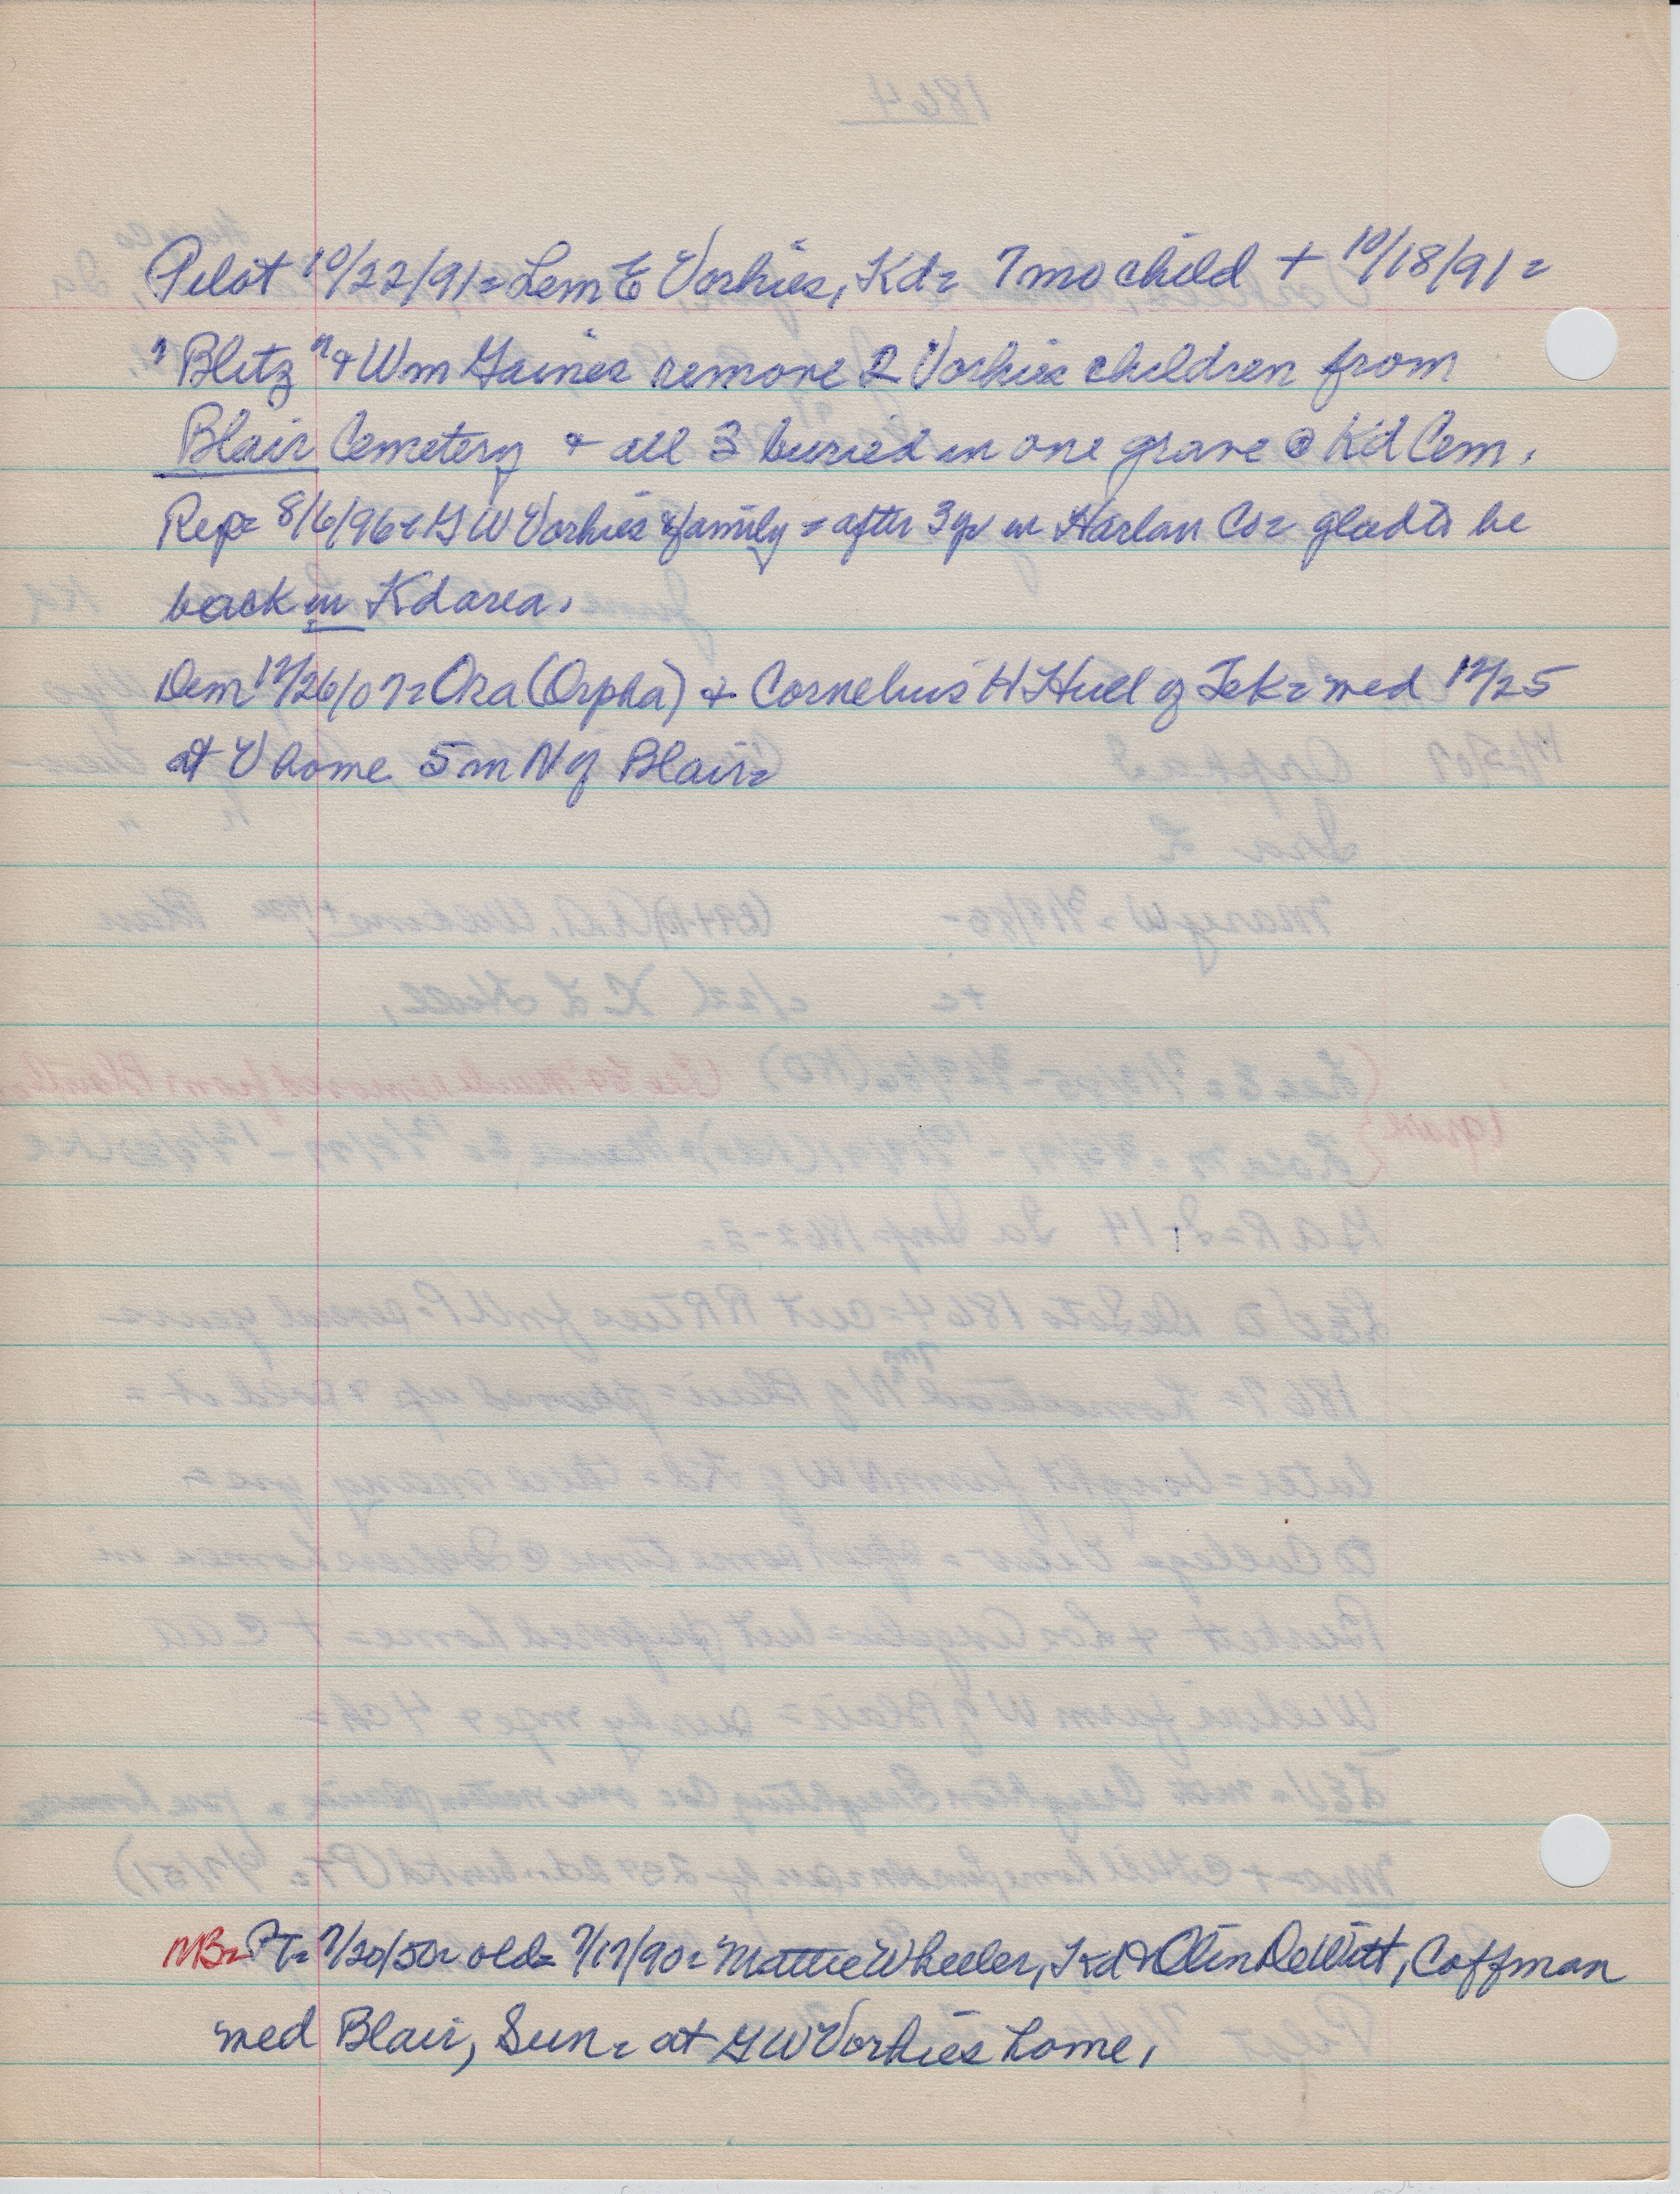 Pilot 10/22/91 = Lem E Vorhies, Kd = 7 mo child + 10/18/91 =
"Blitz" & Wm Gaines remove 2 Vorhies children from
Blair Cemetery & all 3 buried in one grave @ Kd Cem.
Rep = 8/6/96 = G W Vorhies & family = after 3 yr in Harlan Co = glad to be
back in Kd area.
Dem 12/26/07 = Ora (Orpha) & Cornelius H Hull of Tek = med 12/25
at V home 5 m N of Blair =
NB = PT = 7/20/50 = old = 7/17/90 = Mattie Wheeler, Kd & Olin DeWitt, Coffman
med Blair, Sun = at G W Vorhies home.